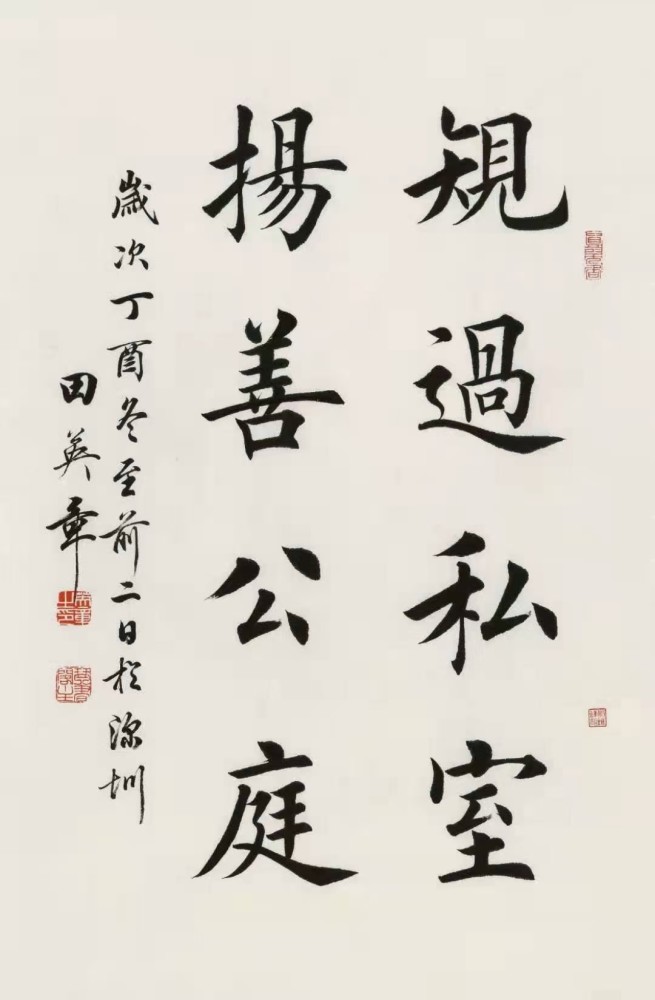 規過私室
揚善公庭
歲次丁酉冬至前二日於深圳
田英章